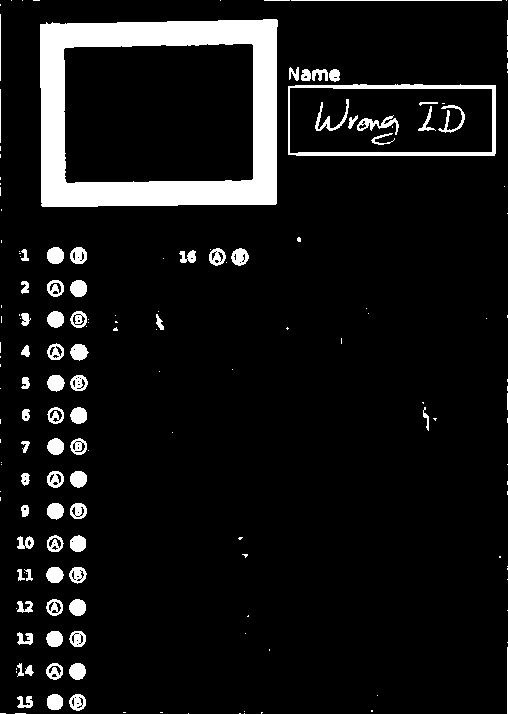 Name
Wrong ID
1 B
2 A
3 B
4 A
5 B
6 A
7 B
8 A
9 B
10 A
11 B
12 A
13 B
14 A
15 B
16 A B